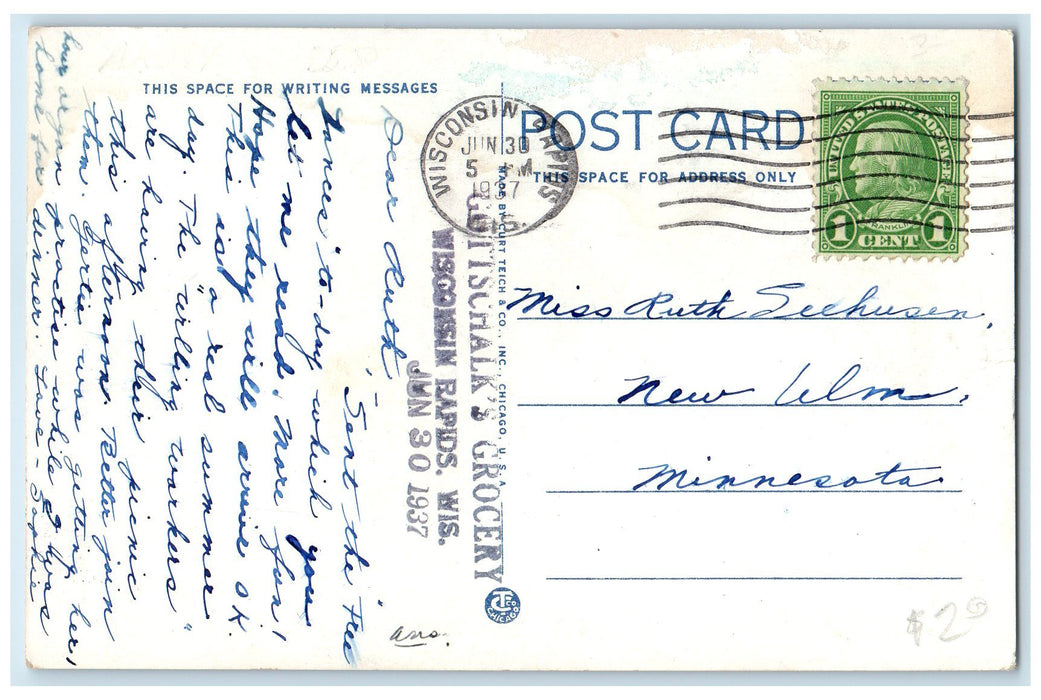 THIS SPACE FOR WRITING MESSAGES
POST CARD
THIS SPACE FOR ADDRESS ONLY
WISCONSIN RAPIDS
JUN 30
5 PM
1937
WIS.
FRANKLIN
1 CENT 1
MADE BY CURT TEICH & CO., INC., CHICAGO, U. S. A.
GOTTSCHALK'S GROCERY
WISCONSIN RAPIDS, WIS.
JUN 30 1937
Dear Ruth,
"Sent the "Free
Lances" to-day which you
let me read. More fun!
Hope they will arrive O.K.
This is a real summer
day. The "willing workers"
are having their picnic
this afternoon. Better join
them. Gertie was getting her
practise while I was
dinner. Love - Sophie
hour or you
home for
Miss Ruth Seehusen,
New Ulm,
Minnesota
CT Co
CHICAGO
ans.
$2